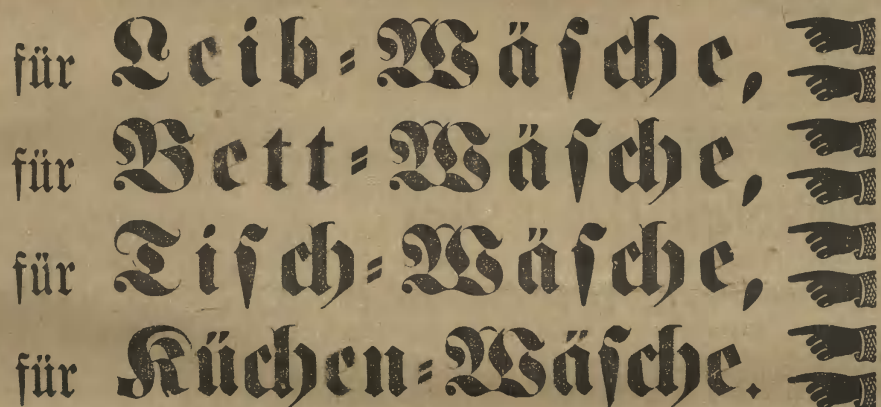 für Leib-Wäsche,
für Bett-Wäsche,
für Tisch-Wäsche,
für Küchen-Wäsche.